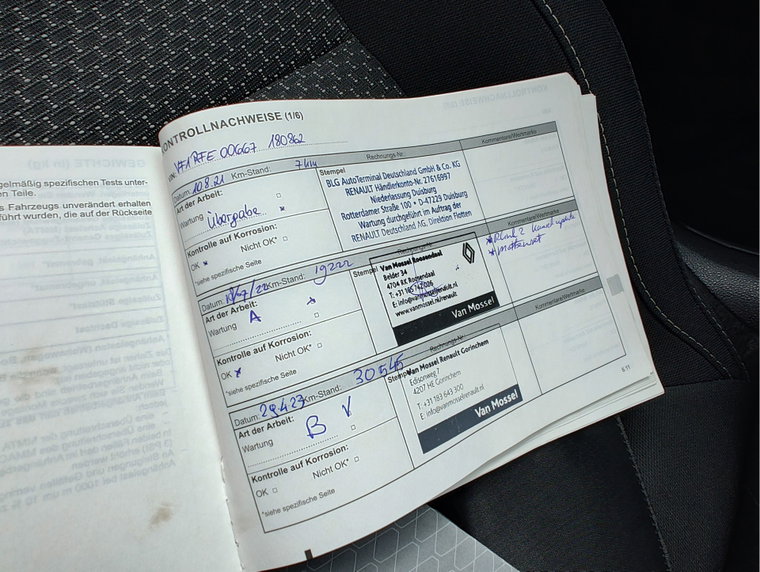 GEWICHTE (in kg)
gelmäßig spezifischen Tests unter-
en Teile.
s Fahrzeugs unverändert erhalten
führt wurden, die auf der Rückseite
KONTROLLNACHWEISE (1/6)
VF1RFE 00667 180862
Datum: 10.8.21 Km-Stand: 7km
Art der Arbeit:
Wartung Übergabe
Kontrolle auf Korrosion:
OK Nicht OK*
*siehe spezifische Seite
Stempel
Rechnungs-Nr.
BLG AutoTerminal Deutschland GmbH & Co. KG
RENAULT Händlerkonto-Nr. 27616997
Niederlassung Duisburg
Rotterdamer Straße 100 • D-47229 Duisburg
Wartung durchgeführt im Auftrag der
RENAULT Deutschland AG, Direktion Flotten
Kommentare/Vermerke
Datum: Km-Stand: 19222
Art der Arbeit:
Wartung A
Kontrolle auf Korrosion:
OK Nicht OK*
*siehe spezifische Seite
Stempel
Rechnungs-Nr.
Van Mossel Roosendaal
Belder 34
4704 RK Roosendaal
www.vanmossel.nl/renault
Van Mossel
Kommentare/Vermerke
Datum: 29.4.23 Km-Stand: 30545
Art der Arbeit:
Wartung B V
Kontrolle auf Korrosion:
OK Nicht OK*
*siehe spezifische Seite
Stempel
Rechnungs-Nr.
Van Mossel Renault Gorinchem
Edisonweg 7
4207 HE Gorinchem
T: +31 183 643 300
E: info@vanmosselrenault.nl
Van Mossel
Kommentare/Vermerke
6.11